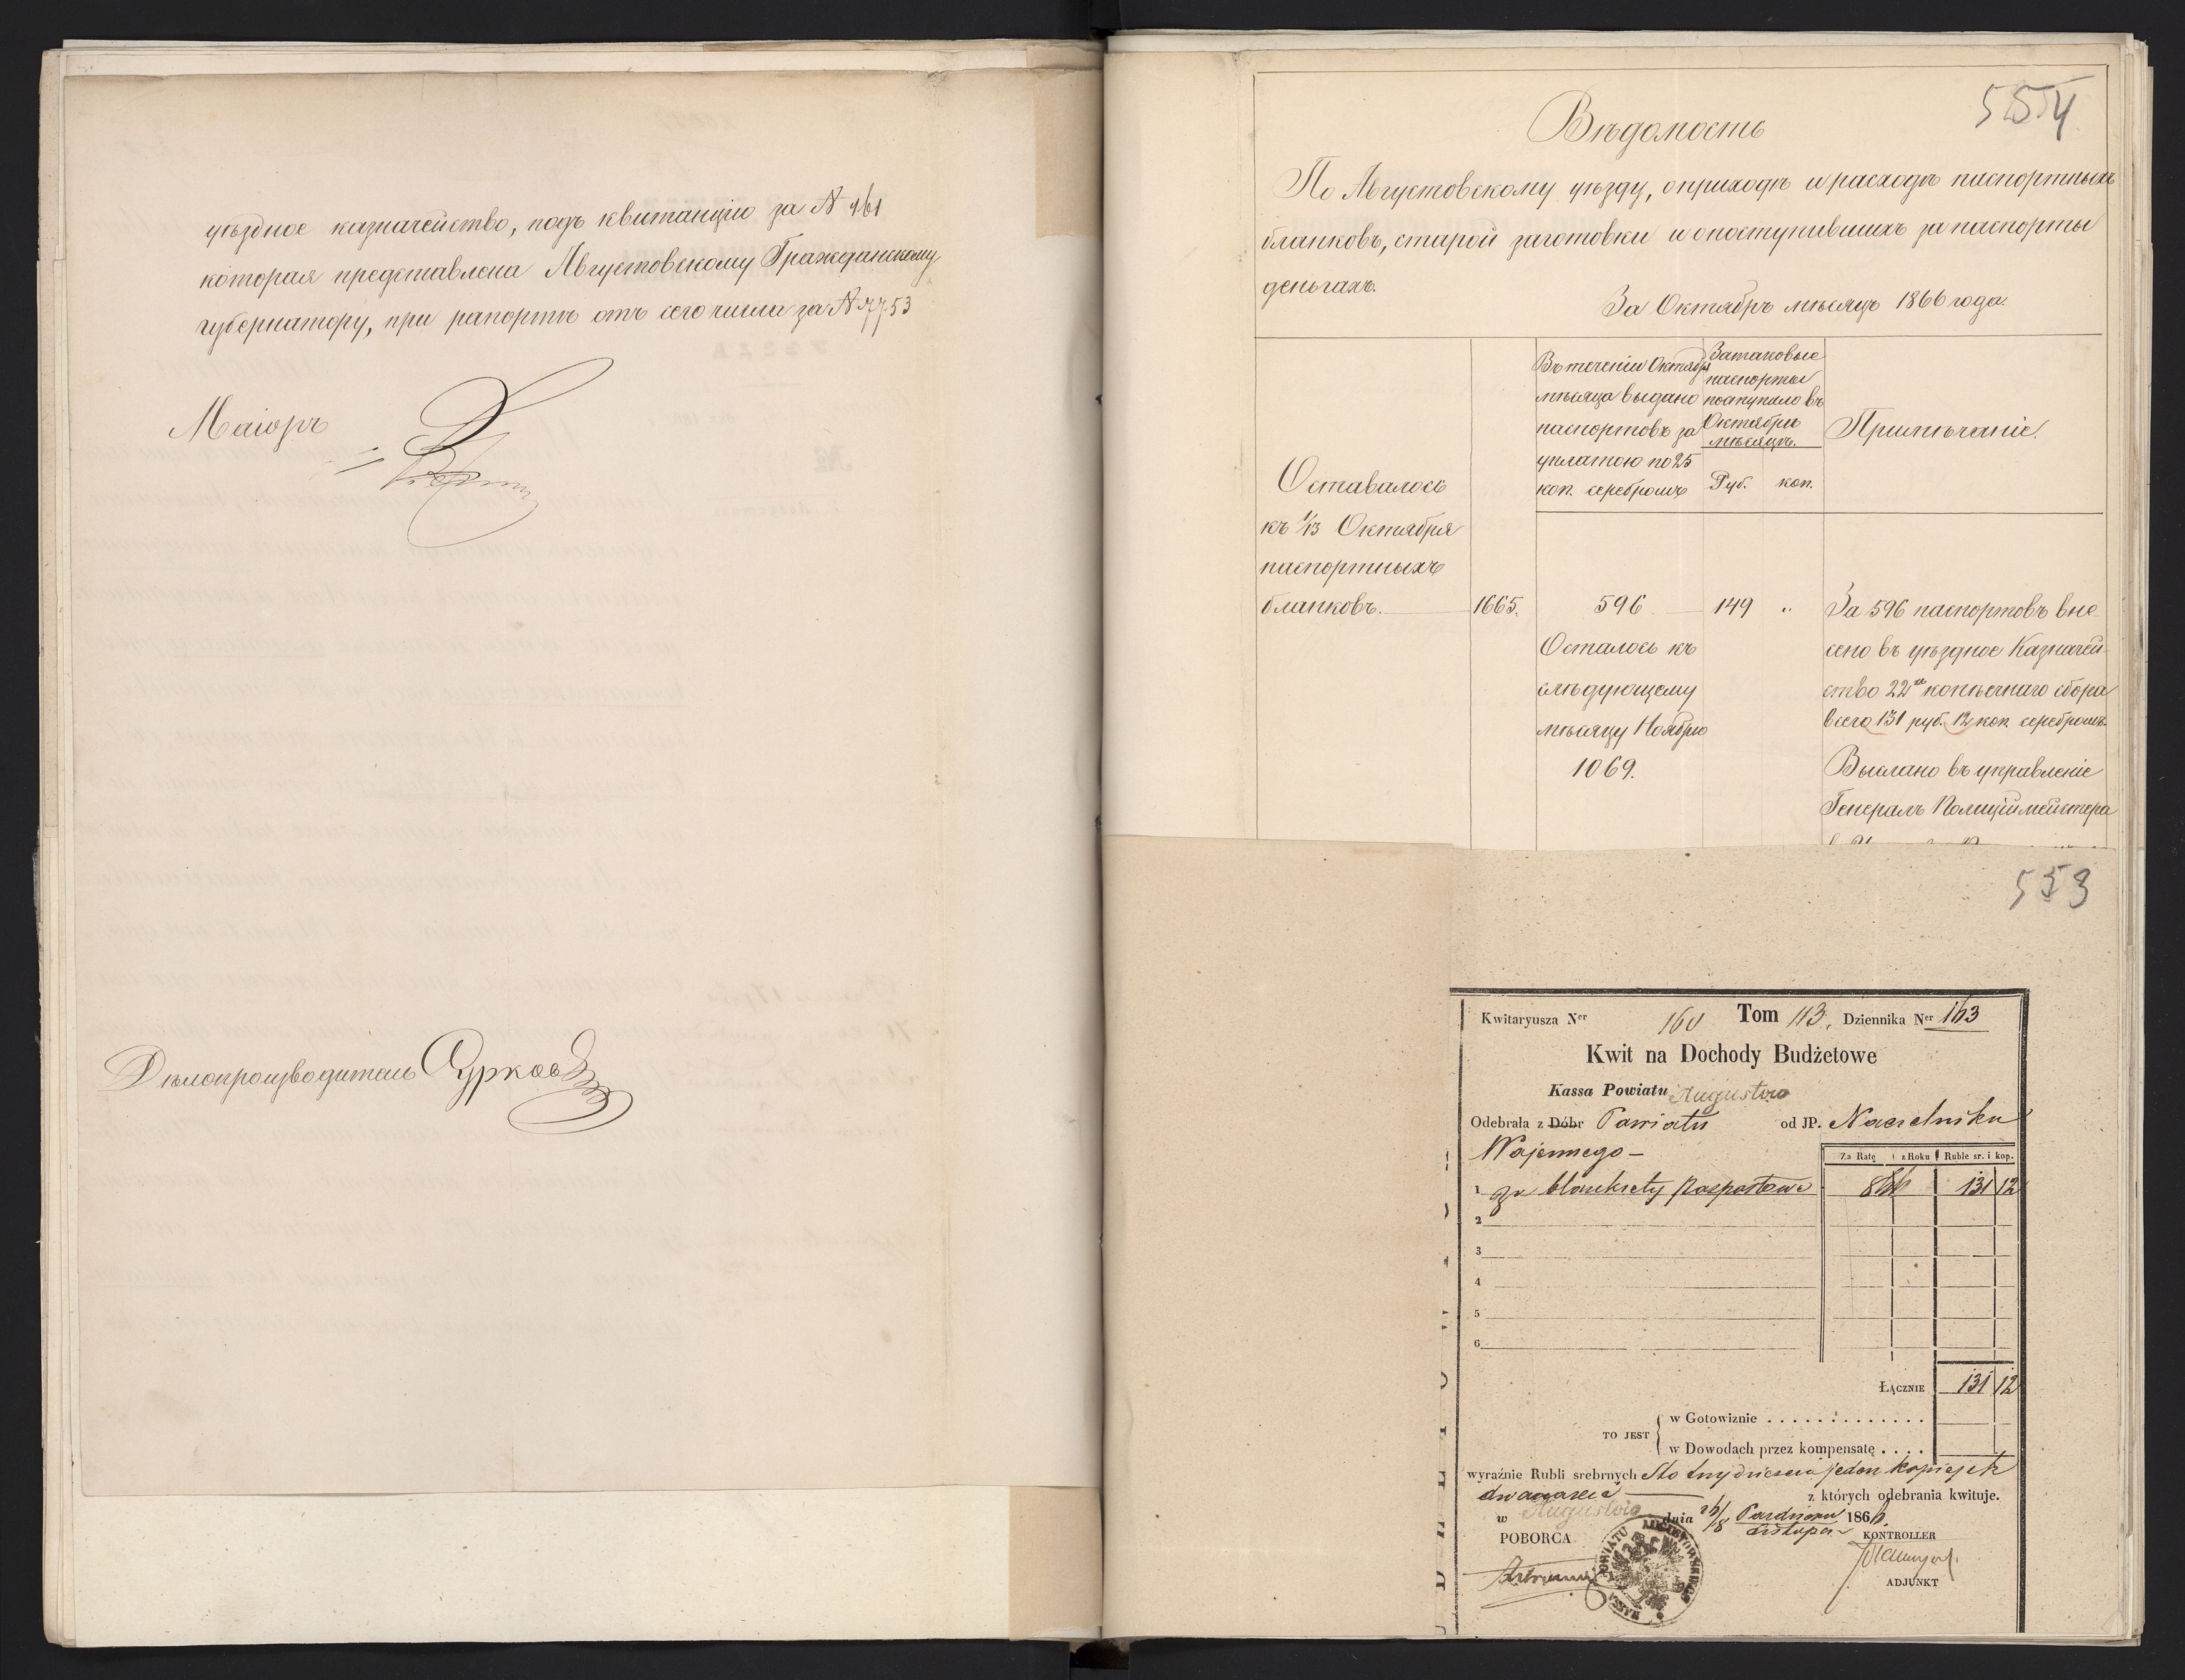 уѣздное казначейство, подъ квитанцію за № 161
которая представлена Августовскому Гражданскому
губернатору, при рапортѣ отъ сего числа за № 7753
Маіоръ
Дѣлопроизводитель
554
Вѣдомость
По Августовскому уѣзду, о приходѣ и расходѣ паспортныхъ
бланковъ, старой заготовки и о поступившихъ за паспорты
деньгахъ.
За Октябрь мѣсяцъ 1866 года.
Оставалось
къ 1/13 Октября
паспортныхъ
бланковъ. 1665.
Въ теченіи Октября
мѣсяца выдано
паспортовъ за
уплатою по 25
коп. серебромъ
За таковые
паспорты
поступило въ
Октябрѣ
мѣсяцѣ.
Руб. коп.
Примѣчаніе.
596 149 "
Осталось къ
слѣдующему
мѣсяцу Ноябрю
1069.
За 596 паспортовъ вне-
сено въ уѣздное Казначей-
ство 22х копѣечнаго сбора
всего 131 руб. 12 коп. серебромъ.
Выслано въ управленіе
Генералъ Полиціймейстера
553
Kwitaryusza Ner 160 Tom 113, Dziennika Ner 163
Kwit na Dochody Budżetowe
Kassa Powiatu Augustowo
Odebrała z Dóbr Powiatu od JP. Naczelnika
Wojennego —
Za Ratę z Roku Ruble sr. i kop.
1 za blankiety paszportowe 866 131 12
2
3
4
5
6
Łącznie 131 12
to jest
w Gotowiznie . . . . . . . . . . . . .
w Dowodach przez kompensatę . . . .
wyraźnie Rubli srebrnych Sto trzydzieści jeden kopiejek
dwanaście z których odebrania kwituje.
w Augustowie dnia Październ 1866.
Listopa
POBORCA KONTROLLER
ADJUNKT